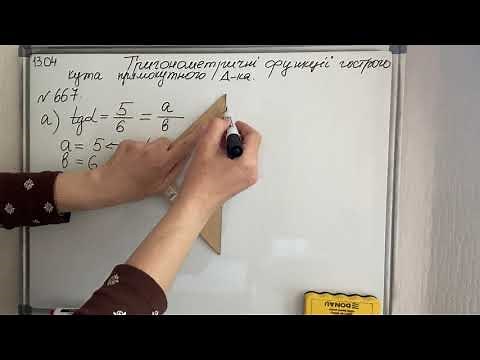 13.04 Тригонометричні функції гострого
кута прямокутного Δ-ка.
№667.
а) tgα = 5/6 = a/b
a = 5
b = 6
DONAU